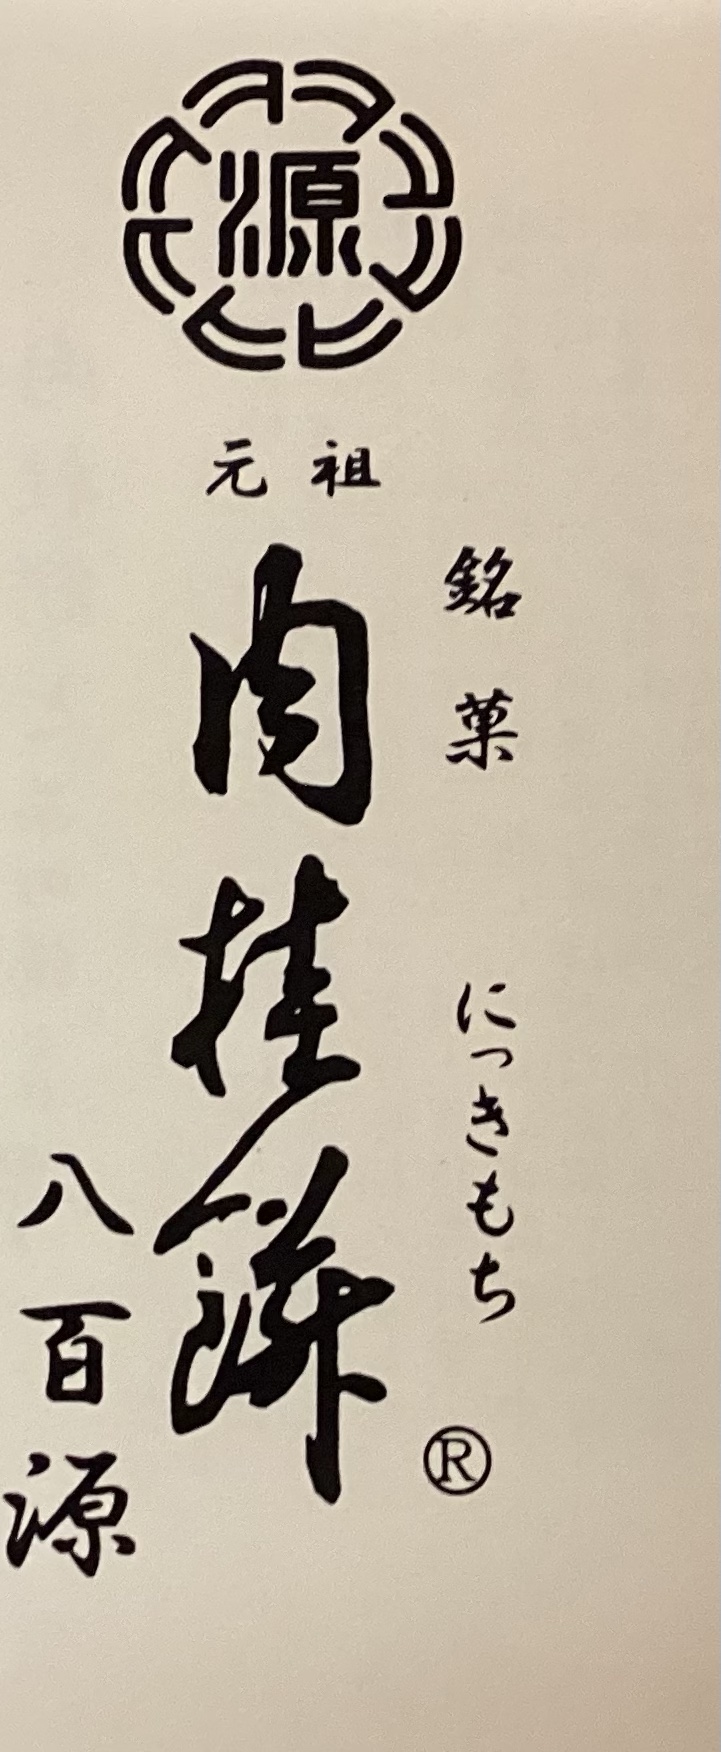 源
元祖
銘菓 にっきもち
肉桂餅
®
八百源